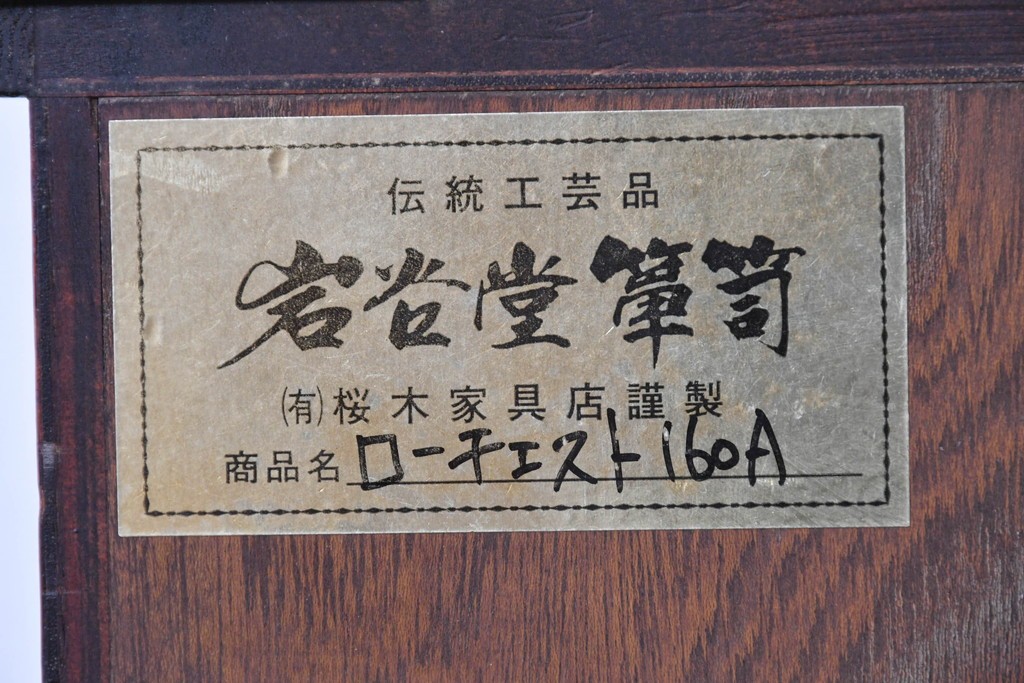 伝統工芸品
岩谷堂箪笥
㈲桜木家具店謹製
商品名 ローチェスト160A